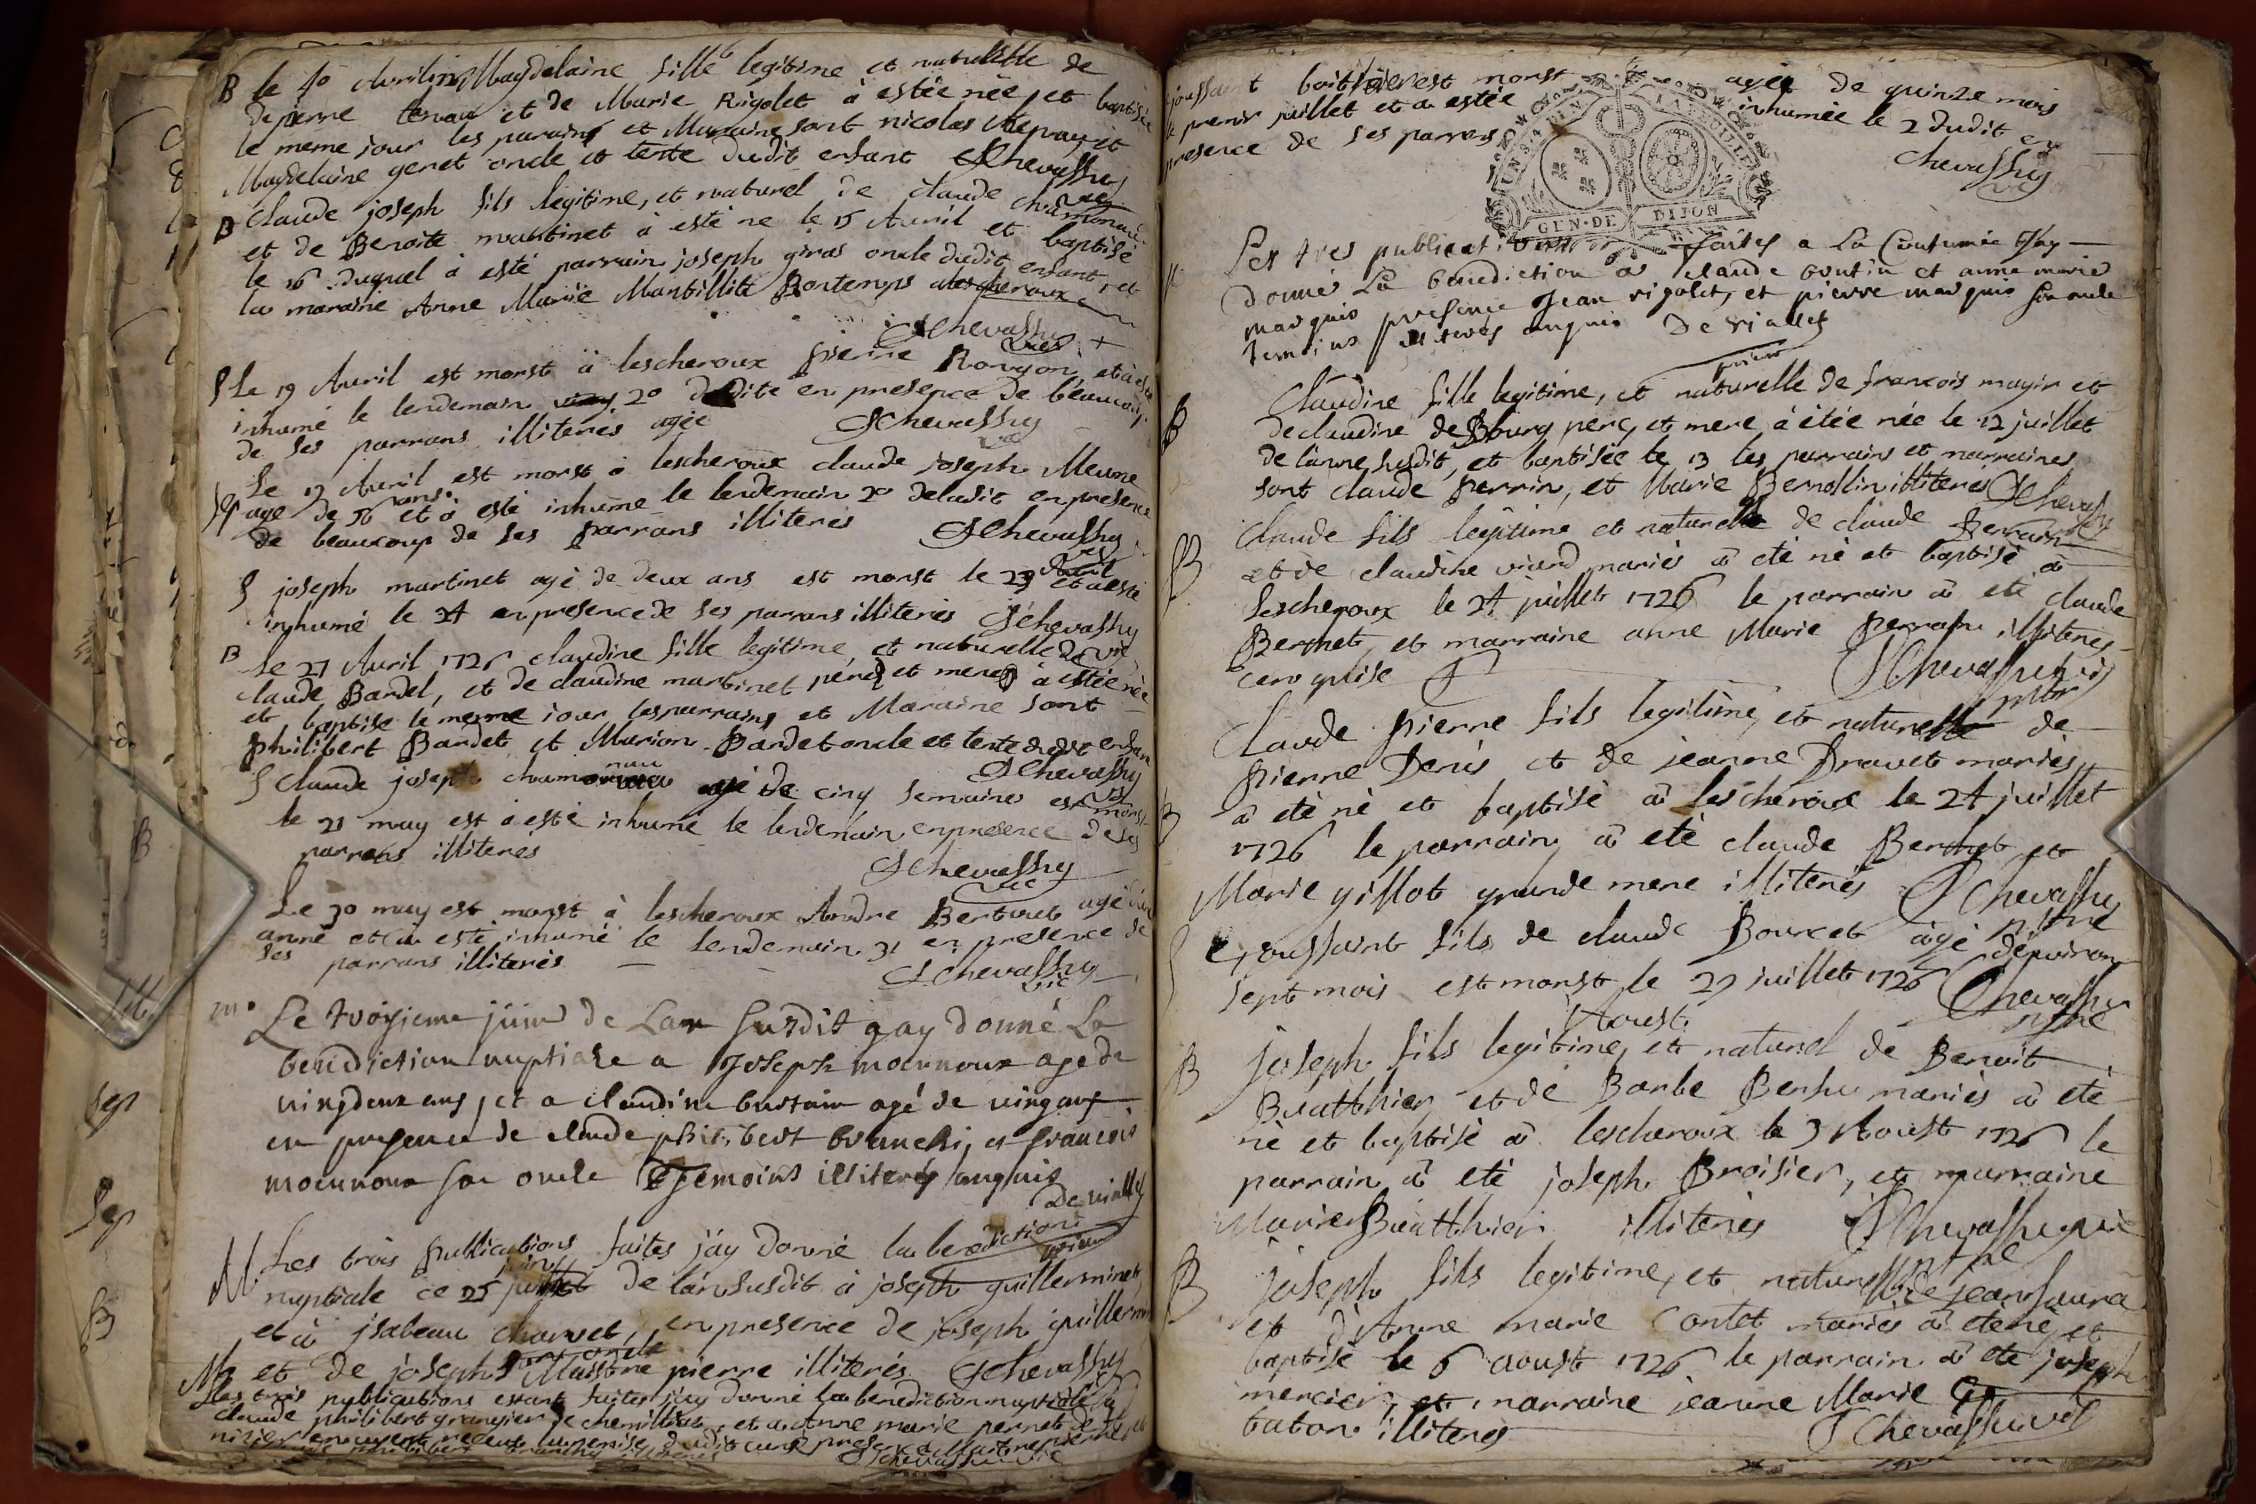 B le 10 Avril 1726 Magdelaine fille legitime et naturelle de
de pierre tenau et de Marie Rigolet à estée née et baptisée
le meme jour les parains et Maraine sont nicolas et
Magdelaine genet oncle et tente dudit enfant JChevassuy
vic
B claude joseph fils legitime, et naturel de claude
et de Benoite martinet à esté ne le 15 Avril et baptisé
le 16 duquel à esté parrain joseph giras oncle dudit enfant, et
la maraine Anne Marie Mantillite Bontemps
JChevassuy
vic
S Le 19 Avril est morst à lescheroux pierre et à esté
inhumé le lendemain 20 dudite en presence de beaucoup
de ses parrans illiterés agée JChevassuy
vic
Le 19 Avril est morst à lescheroux claude joseph Meune
S agé de 56 ans et à esté inhumé le lendemain 20 deludit en presence
de beaucoup de ses parrans illiterés JChevassuy
vic
S joseph martinet agé de deux ans est morst le 23 Avril et à esté
inhumé le 24 en presence de ses parrans illiterés JChevassuy
vic
B Le 27 Avril 1726 claudine fille legitime et naturelle de
claude Bardet, et de claudine martinet pere et mere à estée née
et baptisé le meme jour les parrains et Maraine sont
philibert Bardet et Marion Bardet oncle et tente dudit enfan
JChevassuy
vic
S claude joseph agé de cinq semaines est morst
le 21 may est à esté inhumé le lendemain en presence de ses
parrans illiterés
JChevassuy
vic
Le 30 may est morst à lescheroux Andre Bertinet agé d'un
anné et à esté inhumé le lendemain 31 en presence de
ses parrans illiterés JChevassuy
vic
m. Le troysieme juin de Lan susdit jay donné La
benediction nuptiale a joseph mounoux age de
vingdeux ans, et a claudine bustain agé de vingans
en presence de claude philibert branchi, et francois
mounoux son oncle temoins illiterés enquis
De viallet
prieur
M Les trois publications faites j'ay donné la benediction
nuptiale ce 25 juin de l'an susdit à joseph guillerminet
et à jsabeau charvet, en presence de joseph guillermi
et de joseph son oncle Maistre pierre illiterés JChevassuy
M les trois publications estant faites j'ay donné la benediction nuptiale
claude philibert grangier de chemillias, et a Anne marie pernet
JChevassu vic
joussaint est morst agée de quinze mois
le premir juillet et à estée inhumée le 2 dudit en
presence de ses parrens
Chevassuy
vic
UN S. 4 DEN LA FEUILLE
GEN·DE DIJON
Les tres publications faites a La Coutumée Jay
donné La benediction a claude boutin et anne marie
marquis presence jean rigolet, et pierre marquis son oncle
temoins illiterés enquis De viallet
prieur
B Claudine fille legitime, et naturelle de francois mayin et
de claudine deBourg pere, et mere à étée née le 12 juillet
de l'anne susdit, et baptisée le 13 les parrains et marraines
sont claude perrin, et Marie illiterés JChevassu
B Claude fils legitime et naturelle de claude perrain
et de claudine viard mariés à eté né et baptisé à
Lescheroux le 24 juillet 1726 le parrain à eté claude
Bernet, et marraine anne Marie perrain illiteres
enquise JChevassu
Claude pierre fils legitime, et naturelle de
pierre Denis et de jeanne Dravet mariés
B à eté né et baptisé à lescheroux le 24 juillet
1726 le parrain à eté claude Bernet et
Marie gillot grande mere illiterés JChevassuy
S toussaint fils de claude Bourcet agé denviron
sept mois est morst le 29 juillet 1726 JChevassuy
Aoust.
B joseph fils legitime, et naturel de Benoit
Buatthier et de Barbe mariés à eté
né et baptisé à lescheroux le 3 Aoust 1726 le
parrain à eté joseph Broisier, et marraine
Marie Buatthier illiterés JChevassu
B joseph fils legitime, et naturelle de jean
et d'Anne marie Contet mariés à eté né, et
baptisé le 6 aoust 1726 le parrain à eté joseph
mercier, et marraine jeanne Marie
baton illiterés JChevassu vic